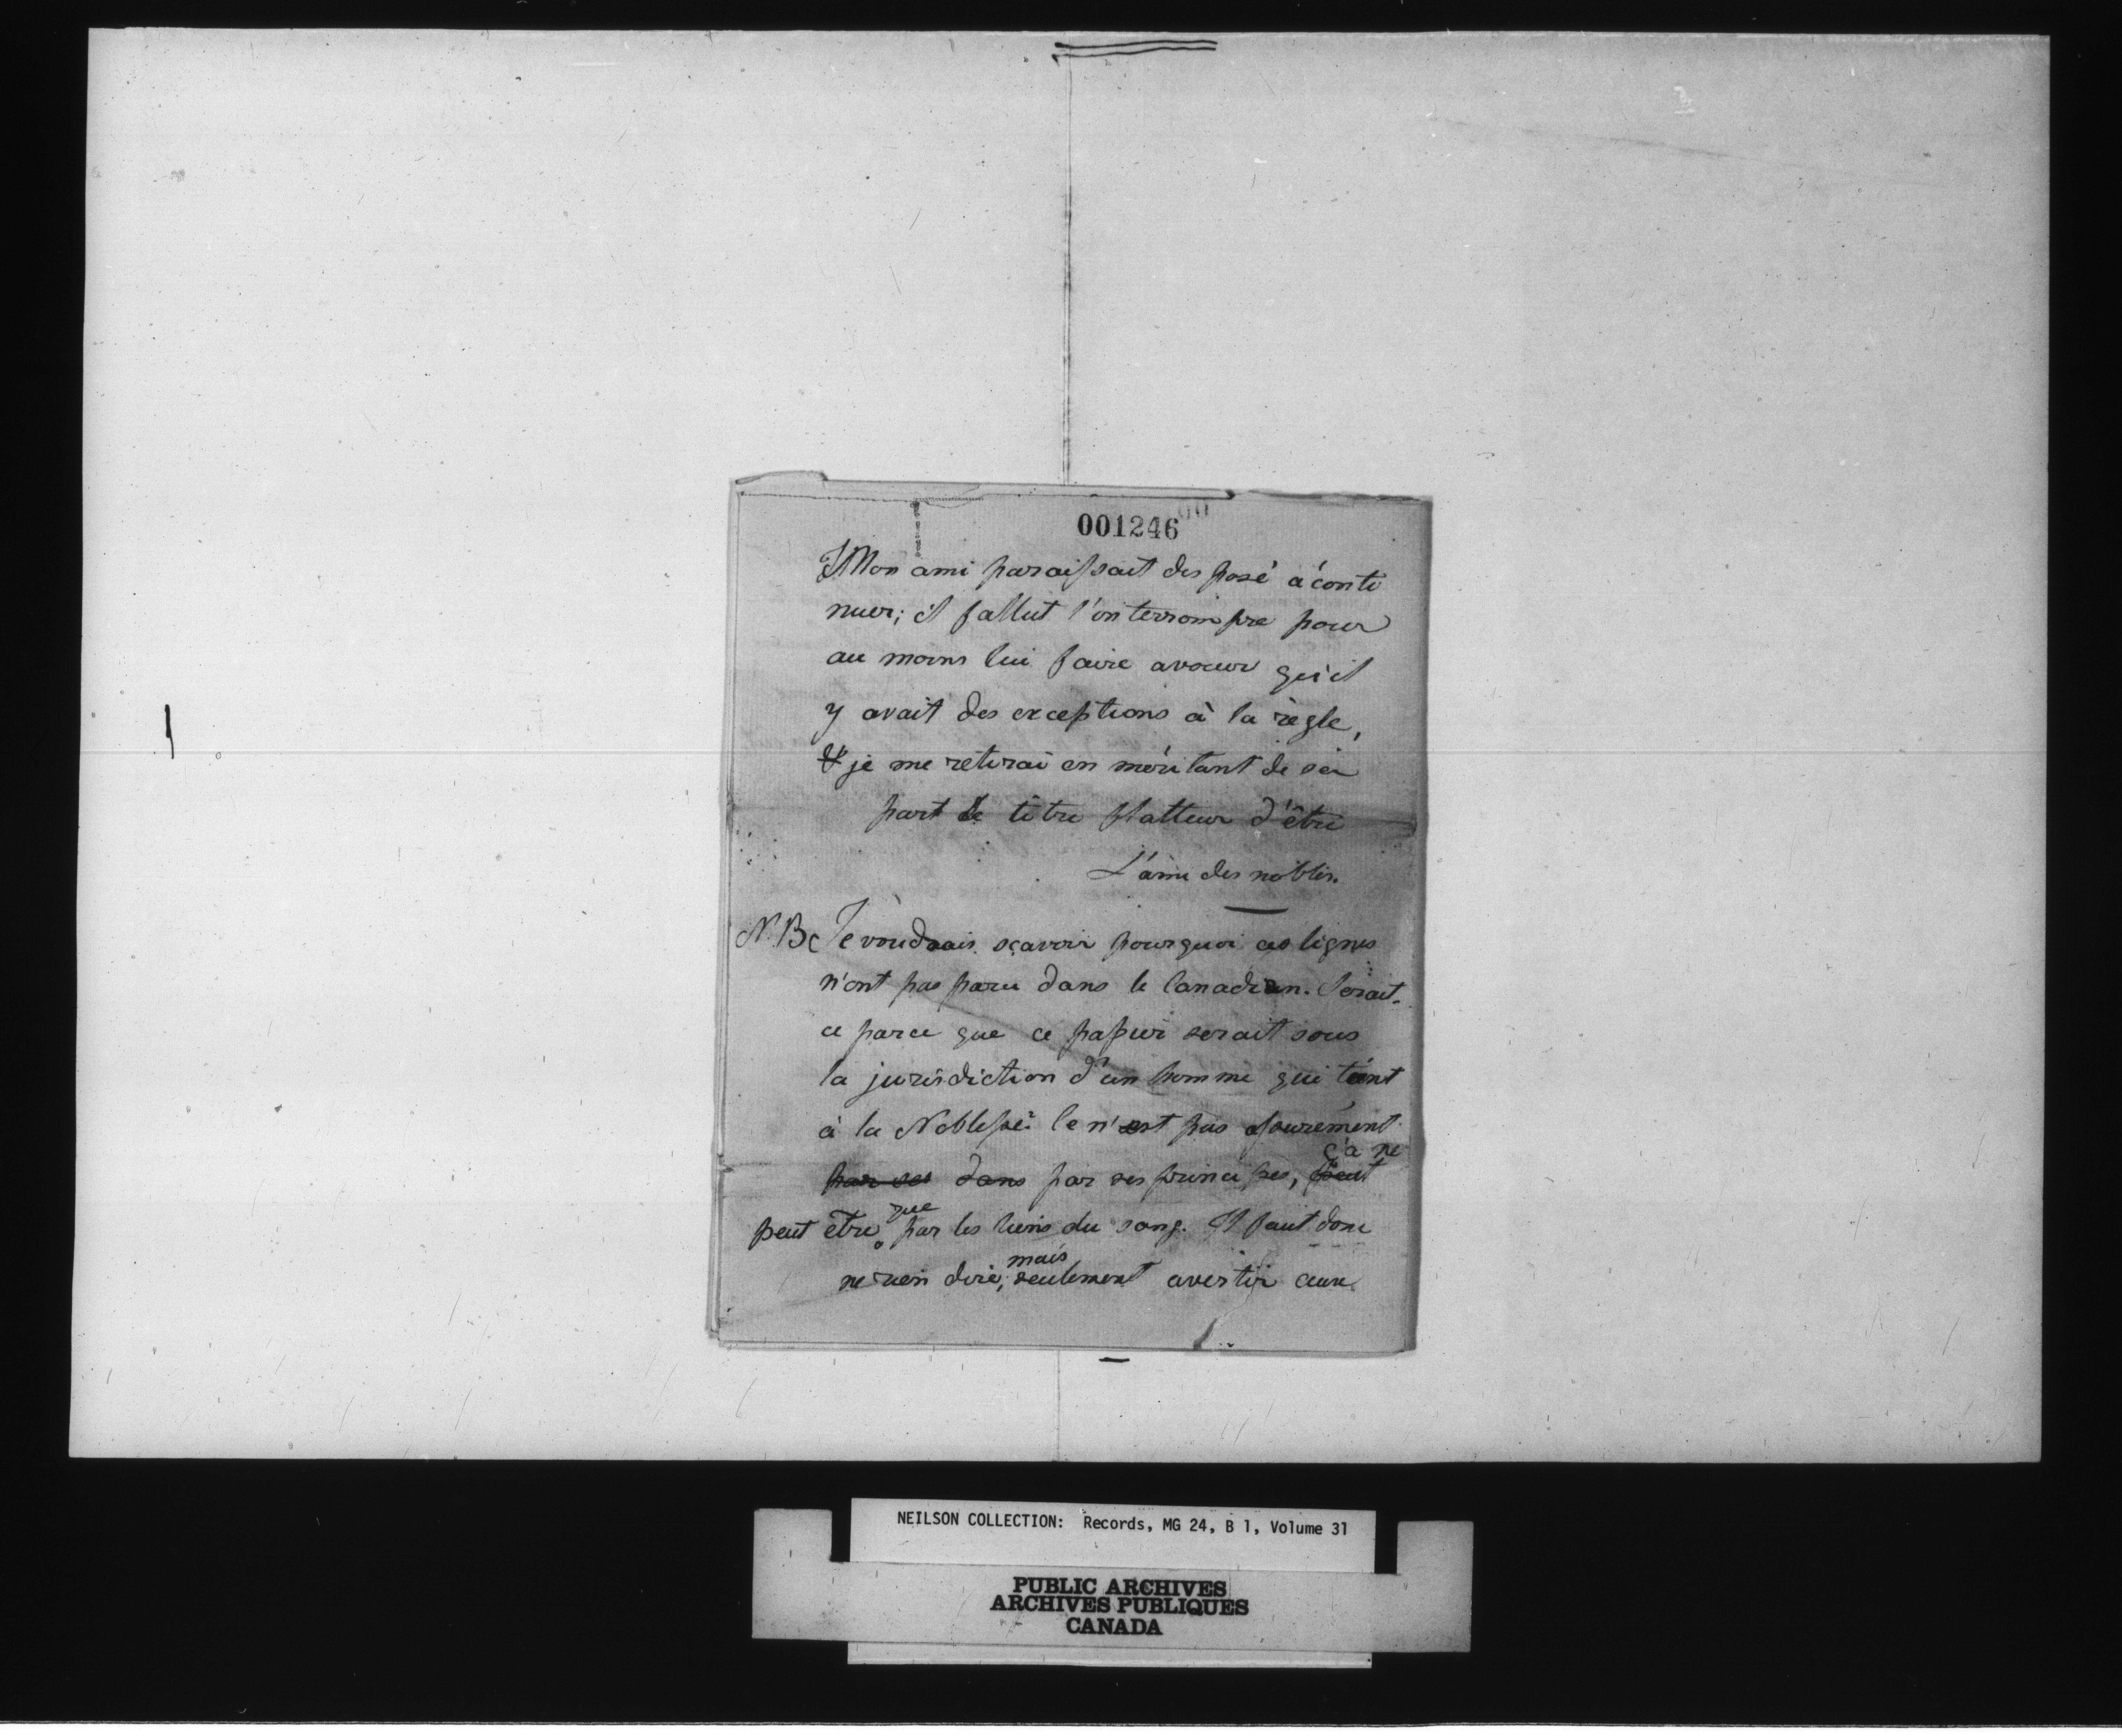 001246
Mon ami paraissait disposé à conti
nuer; il fallut l'interrompre pour
au moins lui faire avouer qu'il
y avait des exceptions à la règle,
& je me retirai en méritant de sa
part le titre flatteur d'être
L'ami des nobles.
N.B. Je voudrais sçavoir pourquoi ces lignes
n'ont pas paru dans le Canadien. Serait-
ce parce que ce papier serait sous
la jurisdiction d'un homme qui tient
à la Noblesse? Ce n'est pas assurément
ç'a ne
par ses dans par ses principes, peut
que
peut être par les liens du sang. Il faut donc
mais
ne rien dire; seulement avertir ceux
NEILSON COLLECTION: Records, MG 24, B 1, Volume 31
PUBLIC ARCHIVES
ARCHIVES PUBLIQUES
CANADA